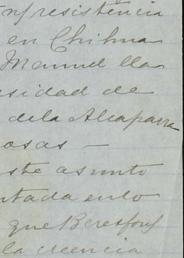 resistencia
en Chihua
Manuel lla
sidad de
dela Alcaparra
osas —
ste asunto
tada enlo
que Beresford
la creencia